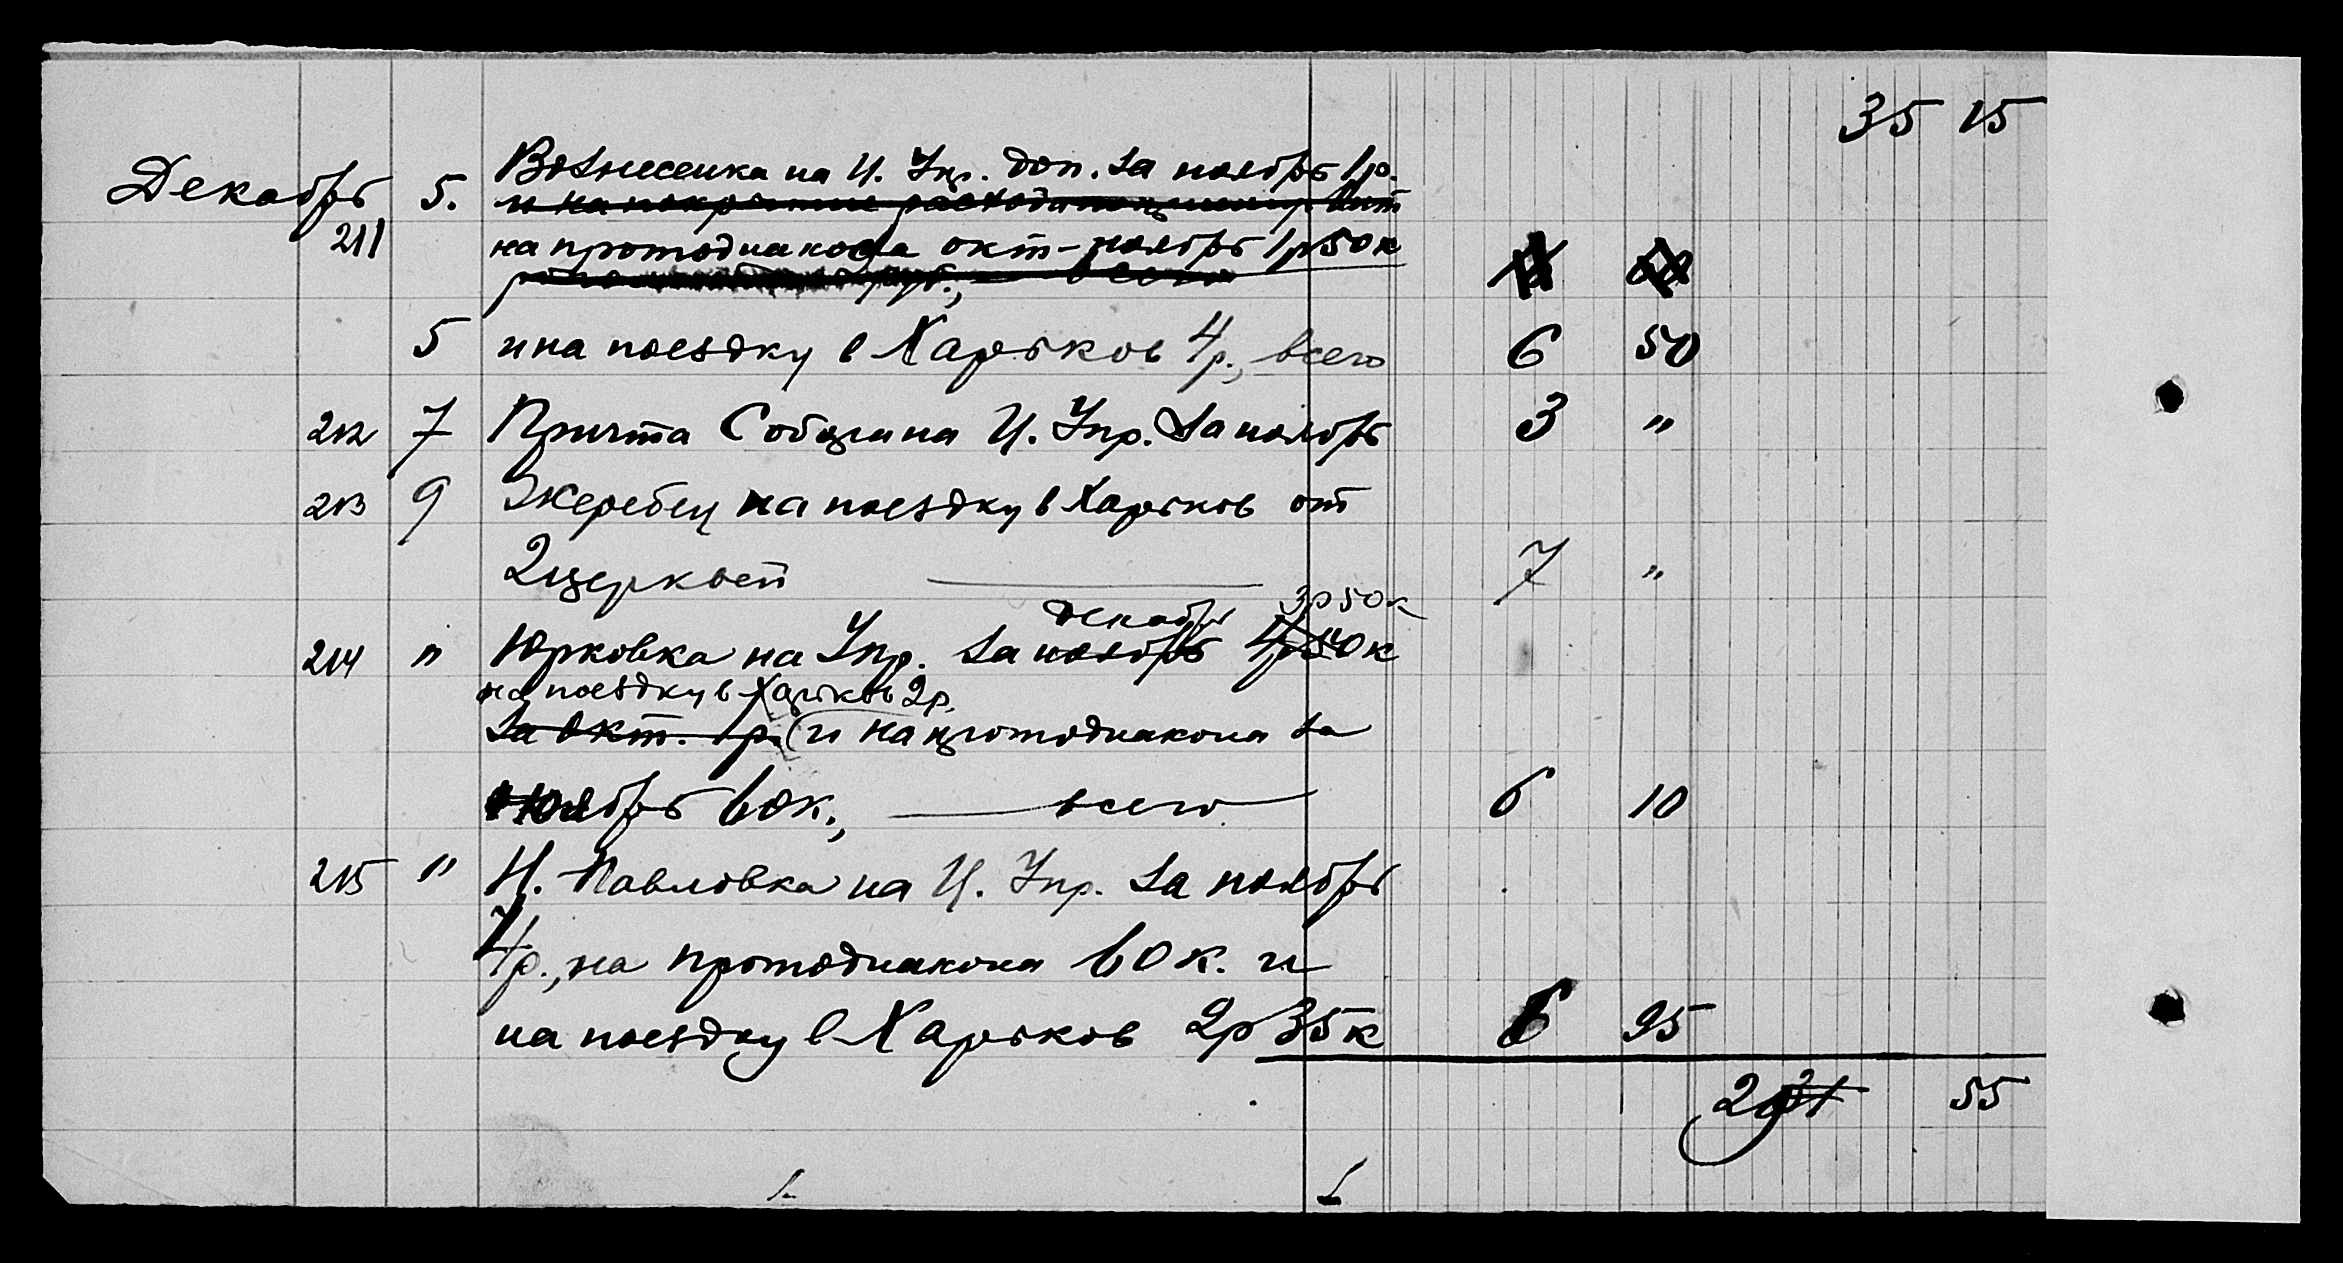 35 15
Декабрь 5. Вознесенка на Ц. Упр. доп. за ноябрь 1р.
и на покрытие расхода по
211 на протодиакона окт-ноябрь 1р50к
руб., всего
5 и на поездку в Харьков 4р., всего 6 50
212 7 Причта Собора на Ц. Упр. за ноябрь 3 "
213 9 Жеребец на поездку в Харьков от
2 церквей 7 "
декабрь 3р50к
214 " Юрковка на Упр. за ноябрь 4р50к
на поездку в Харьков 2р.
за окт. 1р. и на протодиакона за
ноябрь 60к., всего 6 10
215 " Н. Павловка на Ц. Упр. за ноябрь
4р., на протодиакона 60к. и
на поездку в Харьков 2р35к 6 95
29 55